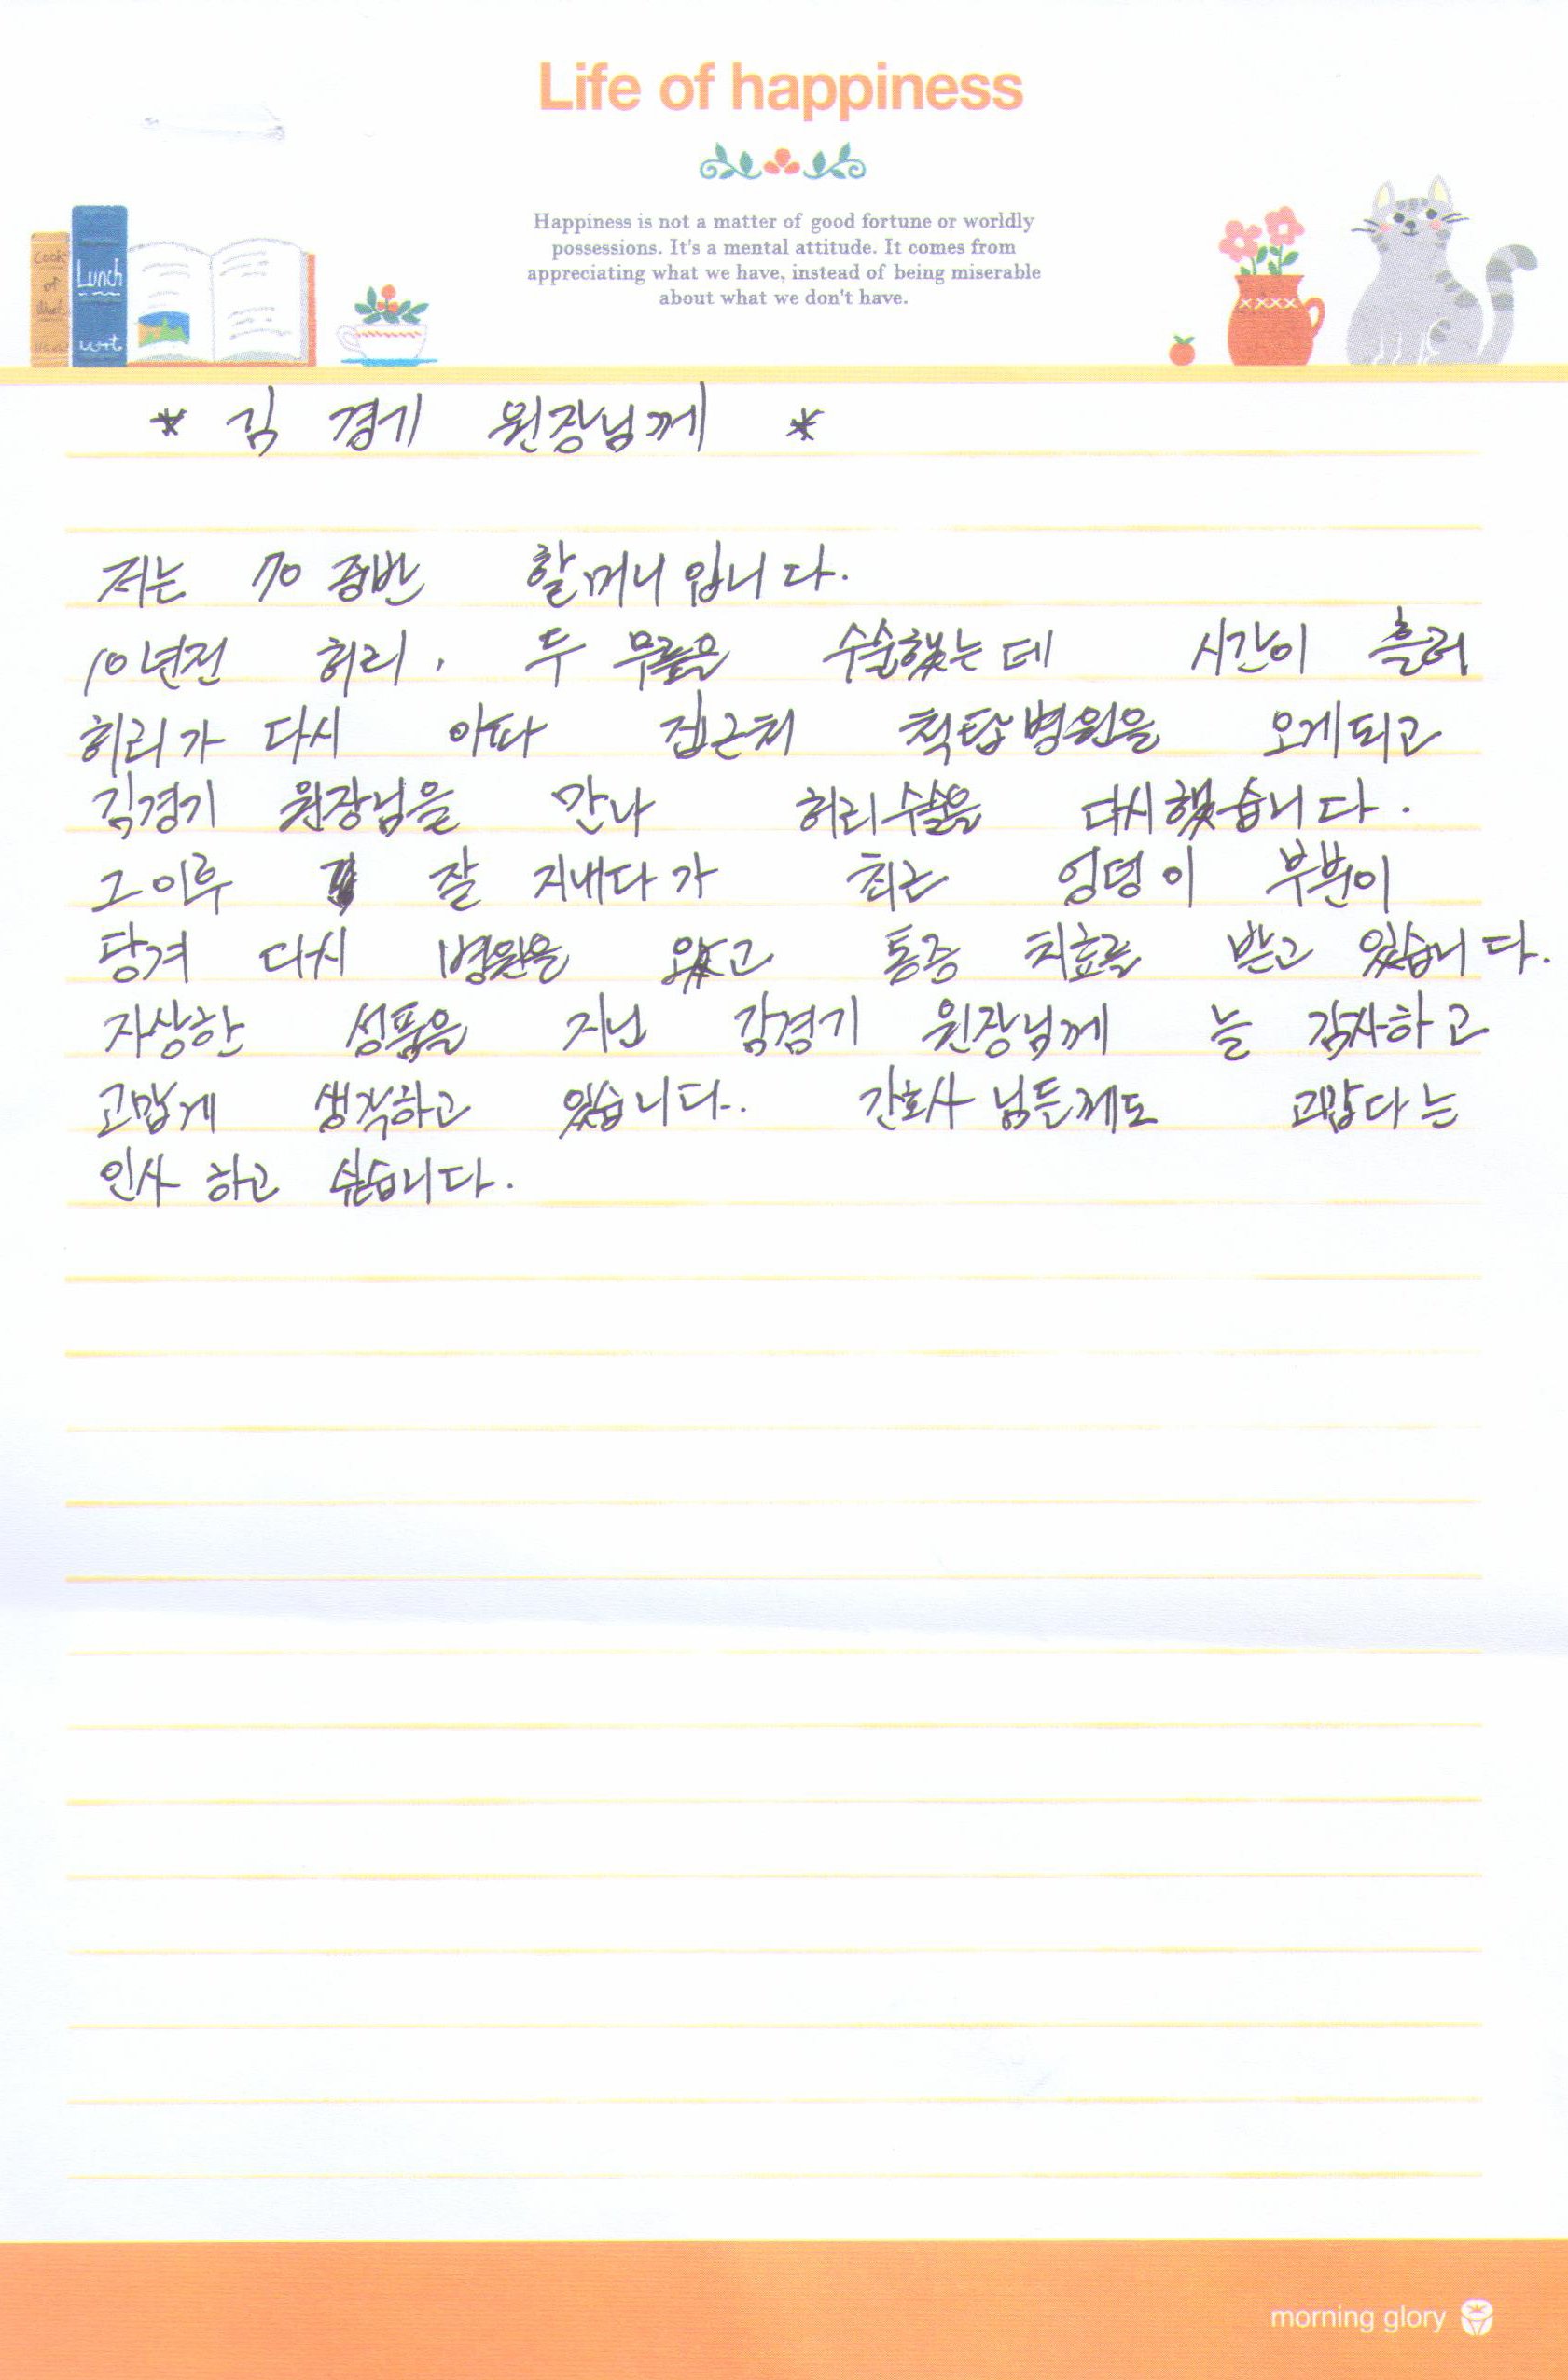 Life of happiness
Happiness is not a matter of good fortune or worldly
possessions. It's a mental attitude. It comes from
appreciating what we have, instead of being miserable
about what we don't have.
Cook
of
Lunch
* 김 경기 원장님께 *
저는 70 중반 할머니 입니다.
10년전 허리, 두 무릎을 수술했는데 시간이 흘러
허리가 다시 아파 집근처 척탑병원을 오게되고
김경기 원장님을 만나 허리수술을 다시했습니다.
그이후 잘 지내다가 최근 엉덩이 부분이
당겨 다시 병원을 왔고 통증 치료를 받고 있습니다.
자상한 성품을 지닌 김경기 원장님께 늘 감사하고
고맙게 생각하고 있습니다. 간호사님들께도 고맙다는
인사 하고 싶습니다.
morning glory